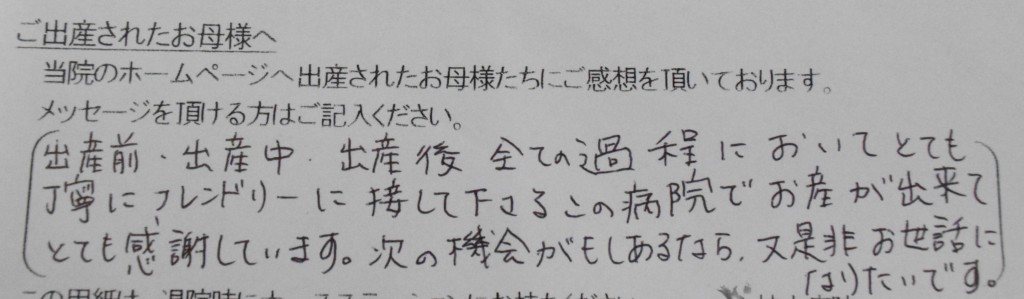 ご出産されたお母様へ
当院のホームページへ出産されたお母様たちにご感想を頂いております。
メッセージを頂ける方はご記入ください。
出産前・出産中・出産後 全ての過程においてとても
丁寧に、フレンドリーに接して下さるこの病院でお産が出来て
とても感謝しています。次の機会がもしあるなら、又是非お世話に
なりたいです。
この用紙は、退院時にナースステーションにお持ちください。